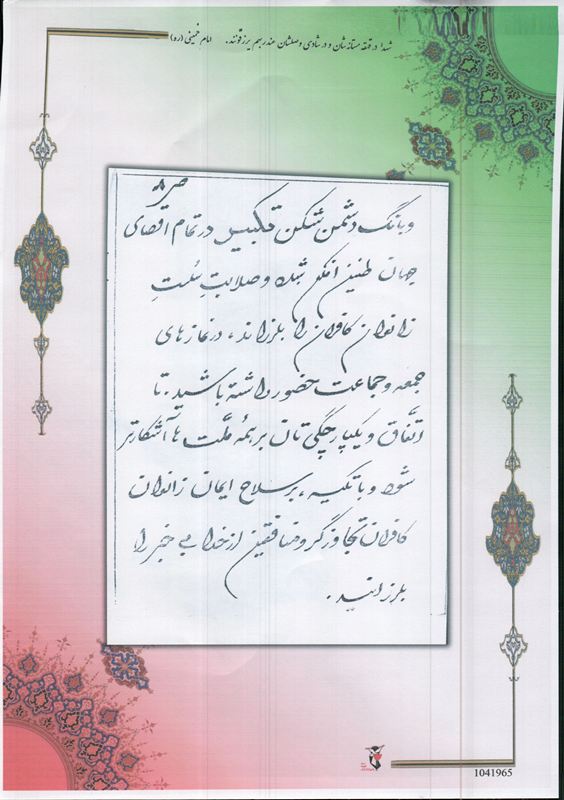 شهدا در قهقهه مستانه‌شان و در شادی وصولشان عند ربهم یرزقونند. امام خمینی (ره)
ص ۸
و بانگ دشمن شکن تکبیر در تمام اقصای
جهان طنین افکن شود و صلابتِ سُلتِ
زانوان کافران را بلرزاند، در نماز های
جمعه و جماعت حضور داشته باشید. تا
اتّفاق و یکپارچگی تان بر همه ملّت ها آشکارتر
شود و با تکیه، بر سلاح ایمان زانوان
کافران تجاوزگر و منافقین از خدا بی خبر را
بلرزانید.
1041965